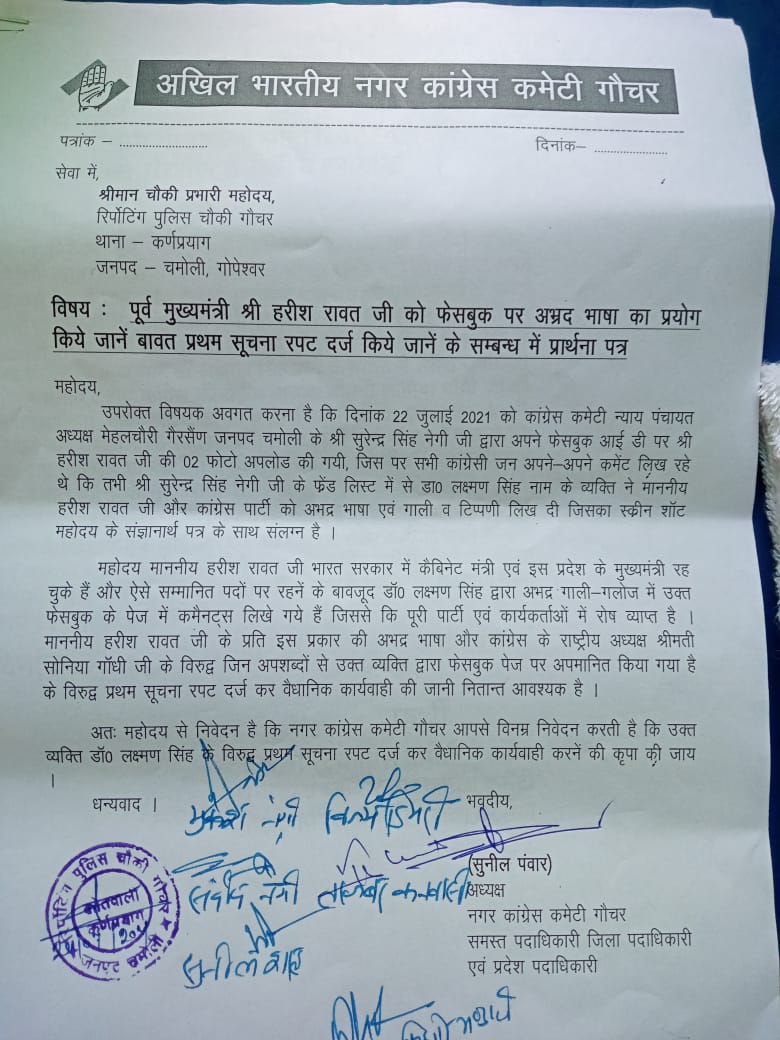 अखिल भारतीय नगर कांग्रेस कमेटी गौचर
पत्रांक – ............................
दिनांक– .......................
सेवा में,
श्रीमान चौकी प्रभारी महोदय,
रिर्पोटिंग पुलिस चौकी गौचर
थाना – कर्णप्रयाग
जनपद – चमोली, गोपेश्वर
विषय : पूर्व मुख्यमंत्री श्री हरीश रावत जी को फेसबुक पर अभ्रद भाषा का प्रयोग
किये जानें बावत प्रथम सूचना रपट दर्ज किये जानें के सम्बन्ध में प्रार्थना पत्र
महोदय,
उपरोक्त विषयक अवगत करना है कि दिनांक 22 जुलाई 2021 को कांग्रेस कमेटी न्याय पंचायत
अध्यक्ष मेहलचौरी गैरसैंण जनपद चमोली के श्री सुरेन्द्र सिंह नेगी जी द्वारा अपने फेसबुक आई डी पर श्री
हरीश रावत जी की 02 फोटो अपलोड की गयी, जिस पर सभी कांग्रेसी जन अपने–अपने कमेंट लिख रहे
थे कि तभी श्री सुरेन्द्र सिंह नेगी जी के फ्रेंड लिस्ट में से डा0 लक्ष्मण सिंह नाम के व्यक्ति ने माननीय
हरीश रावत जी और कांग्रेस पार्टी को अभद्र भाषा एवं गाली व टिप्पणी लिख दी जिसका स्क्रीन शॉट
महोदय के संज्ञानार्थ पत्र के साथ संलग्न है ।
महोदय माननीय हरीश रावत जी भारत सरकार में कैबिनेट मंत्री एवं इस प्रदेश के मुख्यमंत्री रह
चुके हैं और ऐसे सम्मानित पदों पर रहनें के बावजूद डॉ0 लक्ष्मण सिंह द्वारा अभद्र गाली–गलोज में उक्त
फेसबुक के पेज में कमैनट्स लिखे गये हैं जिससे कि पूरी पार्टी एवं कार्यकर्ताओं में रोष व्याप्त है ।
माननीय हरीश रावत जी के प्रति इस प्रकार की अभद्र भाषा और कांग्रेस के राष्ट्रीय अध्यक्ष श्रीमती
सोनिया गॉधी जी के विरुद्व जिन अपशब्दों से उक्त व्यक्ति द्वारा फेसबुक पेज पर अपमानित किया गया है
के विरुद्व प्रथम सूचना रपट दर्ज कर वैधानिक कार्यवाही की जानी नितान्त आवश्यक है ।
अतः महोदय से निवेदन है कि नगर कांग्रेस कमेटी गौचर आपसे विनम्र निवेदन करती है कि उक्त
व्यक्ति डॉ0 लक्ष्मण सिंह के विरुद्व प्रथम सूचना रपट दर्ज कर वैधानिक कार्यवाही करनें की कृपा की जाय
।
धन्यवाद ।
भवदीय,
(सुनील पंवार)
अध्यक्ष
नगर कांग्रेस कमेटी गौचर
समस्त पदाधिकारी जिला पदाधिकारी
एवं प्रदेश पदाधिकारी
मुकेश नेगी
संदीप नेगी
सुनील शाह
रिपोर्टिंग पुलिस चौकी गौचर
कोतवाली
कर्णप्रयाग
जनपद चमोली